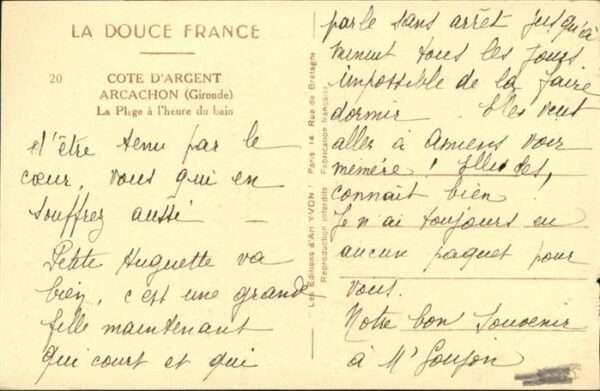 LA DOUCE FRANCE
20 COTE D'ARGENT
ARCACHON (Gironde)
La Plage à l'heure du bain
d'être tenu par le
cœur, vous qui en
souffrez aussi —
Petite Huguette va
bien, c'est une grande
fille maintenant
qui court et qui
Les Editions d'Art YVON Paris 14 Rue de Bretagne
Reproduction interdite Fabrication française
parle sans arrêt jusqu'à
minuit tous les jours
impossible de la faire
dormir. Elle veut
aller à Amiens voir
mémère!
connait bien
Je n'ai toujours eu
aucun paquet pour
vous.
Notre bon Souvenir
à Mr Goujon